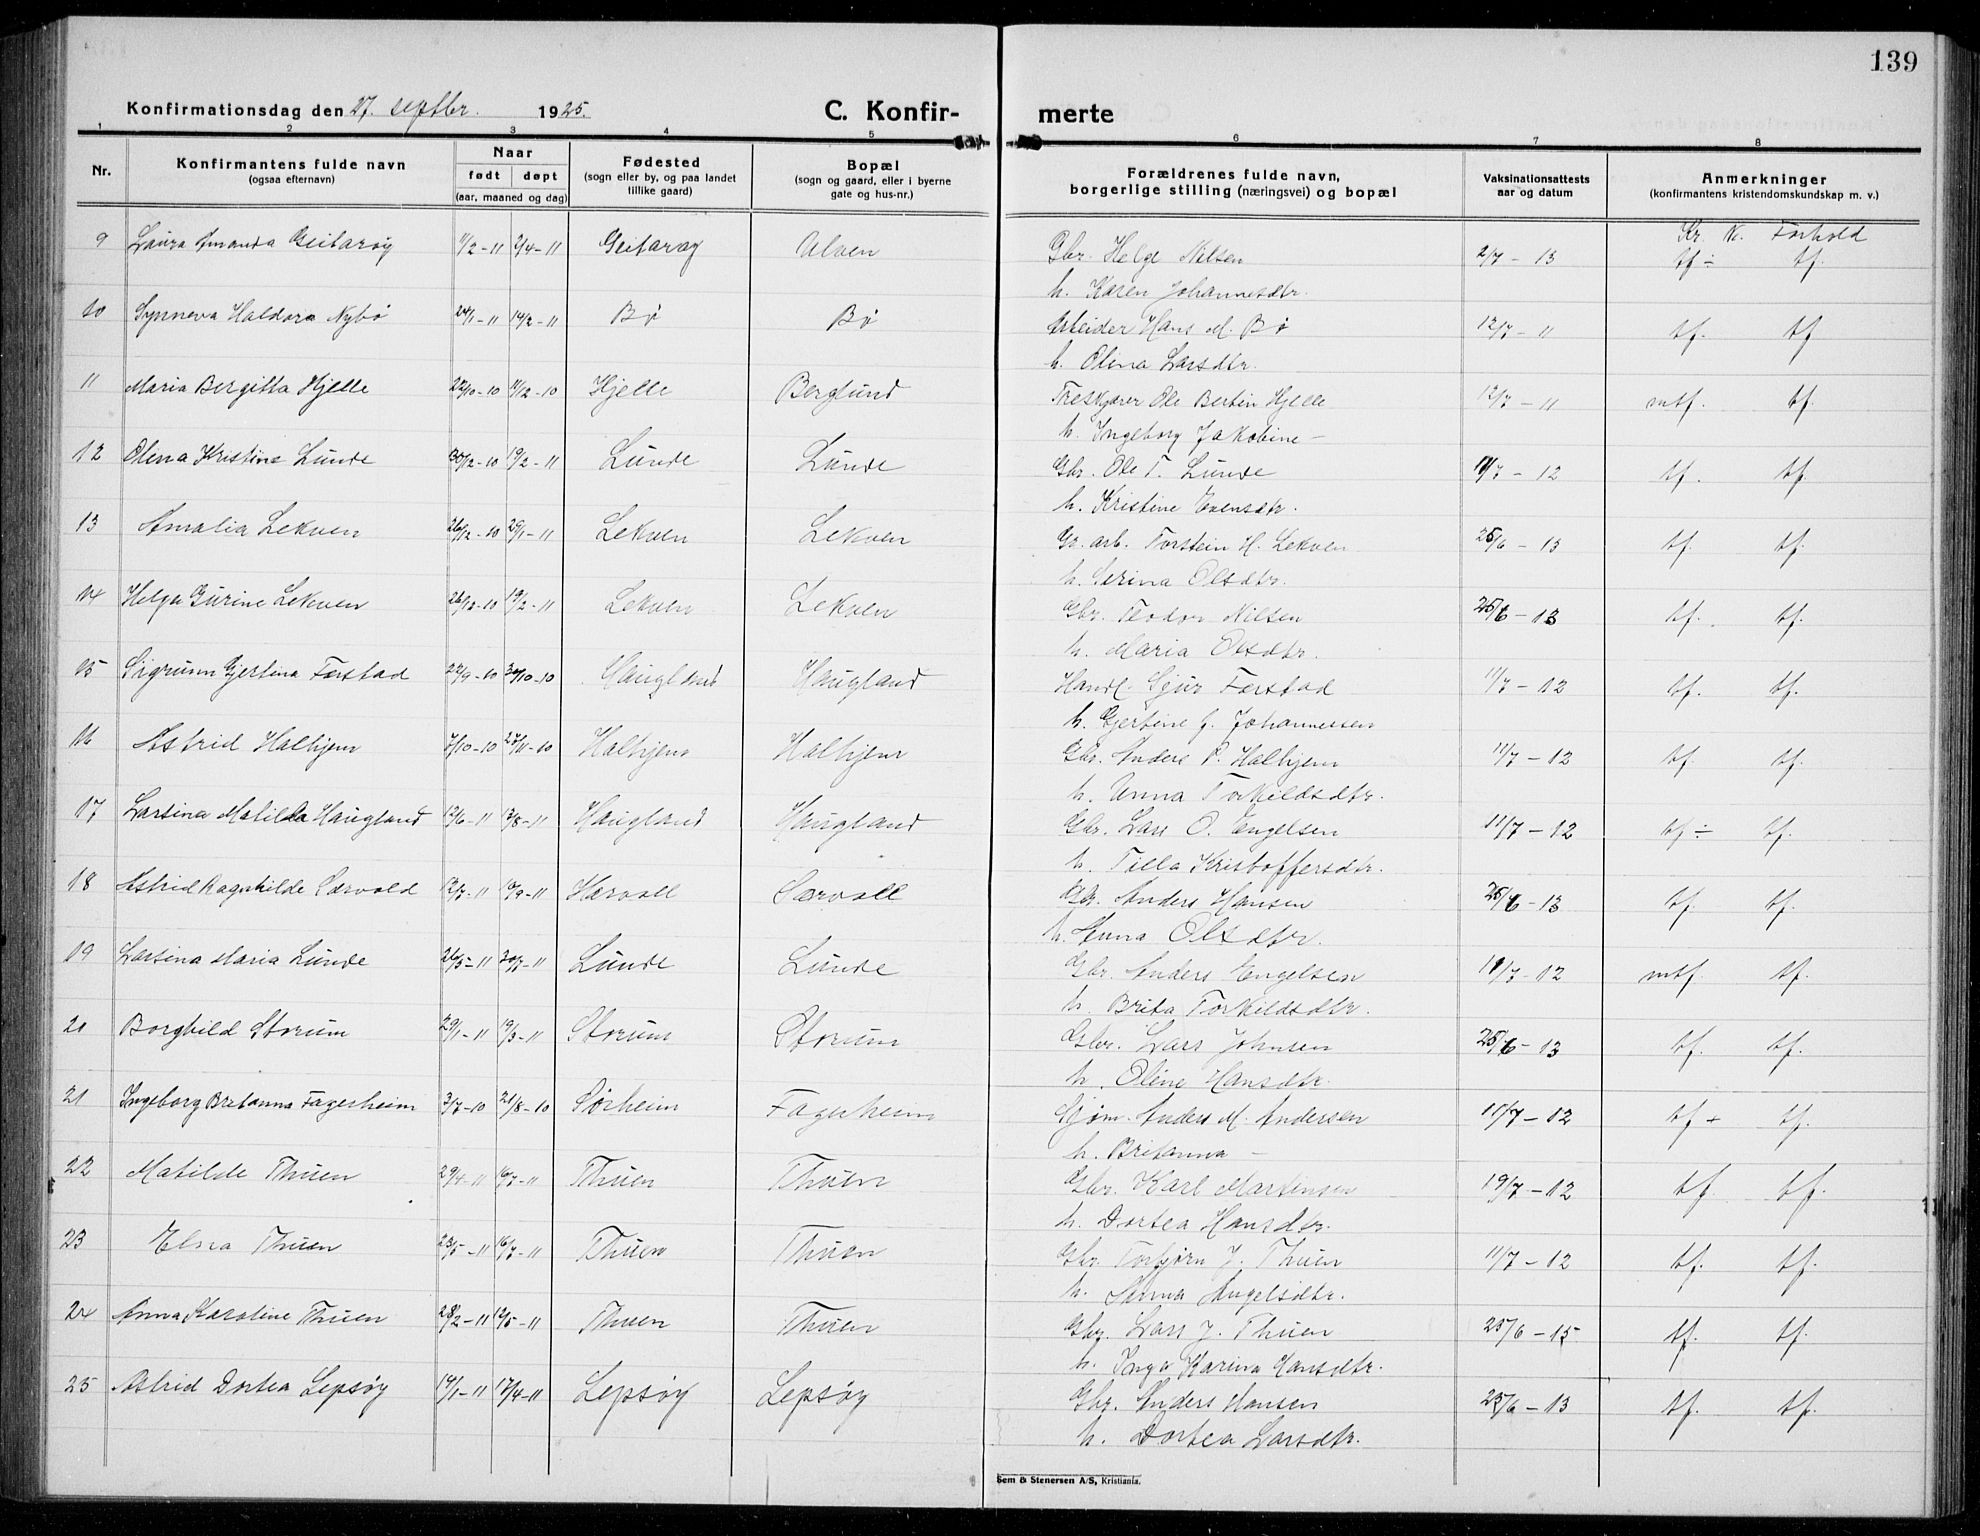 139
Konfirmationsdag den 27. septbr. 1925.
C. Konfir-
merte
1 2 3 4 5 6 7 8
Nr.
Konfirmantens fulde navn
(ogsaa efternavn)
Naar
født døpt
(aar, maaned og dag)
Fødested
(sogn eller by, og paa landet
tillike gaard)
Bopæl
(sogn og gaard, eller i byerne
gate og hus-nr.)
Forældrenes fulde navn,
borgerlige stilling (næringsvei) og bopæl
Vaksinationsattests
aar og datum
Anmerkninger
(konfirmantens kristendomskundskap m. v.)
Kr. K. Forhold
9 Laura Amanda Geitarøy 11/2-11 2/4-11 Geitarøy Ulven Gbr. Helge Nilsen 2/7-13 tf ÷ tf.
h. Karen Johannesdtr.
10 Synneva Haldora Nybø 24/1-11 14/2-11 Bø Bø Arbeider Hans M. Bø 12/7-11 tf. tf
h. Olina Larsdtr.
11 Maria Bergitta Hjelle 22/10-10 11/12-10 Hjelle Berglund Treskjærer Ole Bertin Hjelle 12/7-11 mtf. tf.
h. Ingeborg Jakobine -
12 Olena Kristine Lunde 30/12-10 19/2-11 Lunde Lunde Gbr. Ole T. Lunde 11/7-12 tf. tf.
h. Kristine Evensdtr.
13 Amalia Lekven 26/12-10 29/1-11 Lekven Lekven Gr. arb. Torstein H. Lekven 25/6-13 tf. tf.
h. Serina Olsdtr.
14 Helga Gurine Lekven 26/12-10 19/2-11 Lekven Lekven Gbr. Teodor Nilsen 25/6-13 tf. tf.
h. Maria Olsdtr.
15 Sigrunn Gjertina Ferstad 22/9-10 30/10-10 Haugland Haugland Handl. Sjur Ferstad 11/7-12 tf. tf.
h. Gjertine f. Johannessen
16 Astrid Halhjem 7/10-10 27/11-10 Halhjem Halhjem Gbr. Anders P. Halhjem 11/7-12 tf. tf.
h. Anna Torkildsdtr.
17 Larsina Matilda Haugland 12/6-11 13/8-11 Haugland Haugland Gbr. Lars O. Engelsen 11/7-12 tf ÷ tf.
h. Tilla Kristoffersdtr.
18 Astrid Ragnhilde Særvold 12/7-11 10/9-11 Særvoll Særvoll Gbr. Anders Hansen 25/6-13 tf. tf.
h. Anna Olsdtr.
19 Larsina Maria Lunde 26/5-11 30/7-11 Lunde Lunde Gbr. Anders Engelsen 11/7-12 mtf. tf.
h. Brita Torkildsdtr.
20 Borghild Storum 29/1-11 19/3-11 Storum Storum Gbr. Lars Johnsen 25/6-13 tf. tf.
h. Oline Hansdtr.
21 Ingeborg Britanna Fagerheim 3/7-10 21/8-10 Sørheim Fagerheim Sjøm. Anders M. Andersen 11/7-12 tf ÷ tf.
h. Britanna -
22 Matilde Thuen 29/4-11 16/7-11 Thuen Thuen Gbr. Karl Martinsen 19/7-12 tf. tf.
h. Dortea Hansdtr.
23 Elna Thuen 23/5-11 16/7-11 Thuen Thuen Gbr. Torbjørn J. Thuen 11/7-12 tf. tf.
h. Anna Engelsdtr.
24 Anna Karoline Thuen 28/2-11 12/5-11 Thuen Thuen Gbr. Lars J. Thuen 25/6-15 tf. tf.
h. Inga Karina Hansdtr.
25 Astrid Dortea Lepsøy 14/1-11 17/4-11 Lepsøy Lepsøy Gbr. Anders Hansen 25/6-13 tf. tf.
h. Dortea Larsdtr.
Sem & Stenersen A/S, Kristiania.